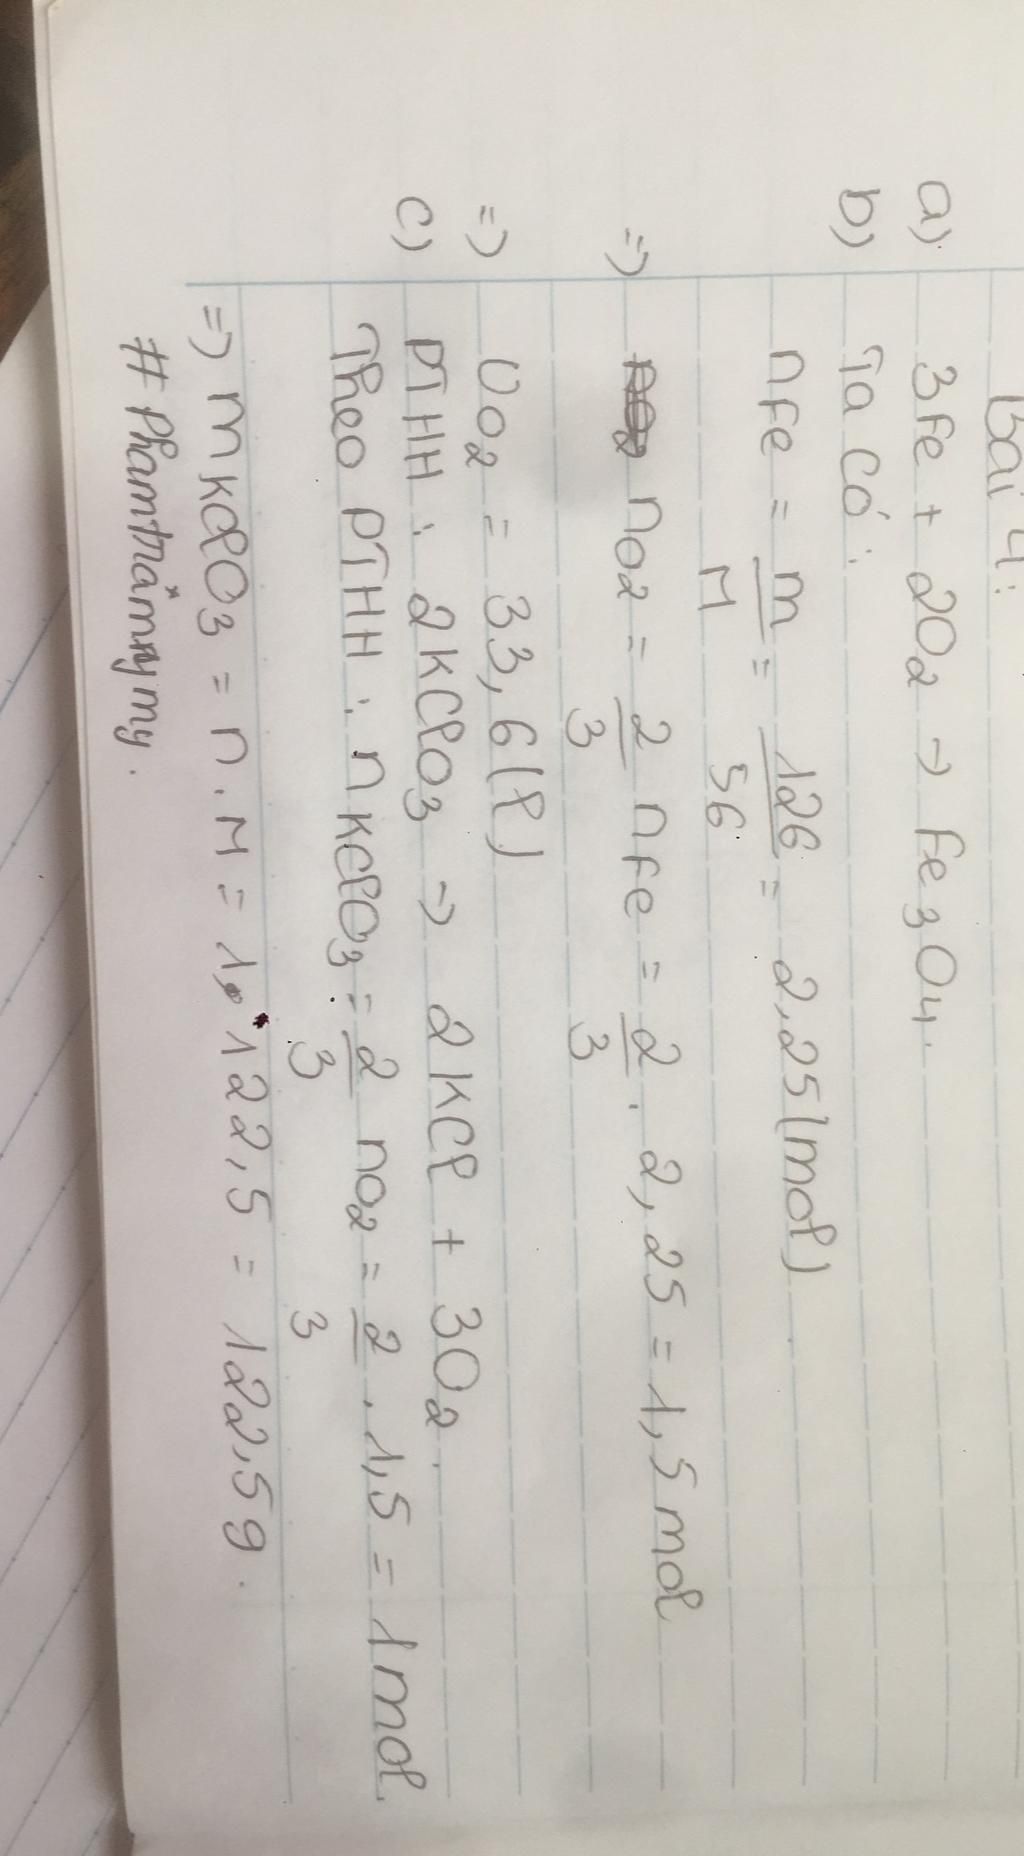 Bài 4:
a) 3Fe + 2O2 → Fe3O4.
b) Ta có:
nFe = m/M = 126/56 = 2,25(mol)
=> nO2 = 2/3 nFe = 2/3 . 2,25 = 1,5 mol
=> VO2 = 33,6(l)
c) PTHH: 2KClO3 → 2KCl + 3O2.
Theo PTHH: nKClO3 = 2/3 nO2 = 2/3 . 1,5 = 1mol.
=> mKClO3 = n.M = 1.122,5 = 122,5g.